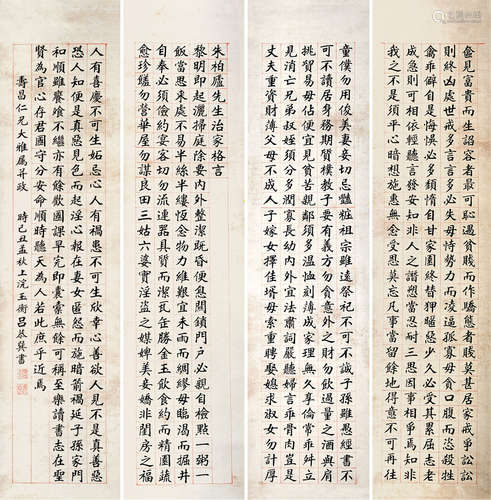 朱柏廬先生治家格言
黎明即起灑掃庭除要內外整潔既昏便息關鎖門戶必親自檢點一粥一
飯當思來處不易半絲半縷恆念物力維艱宜未雨而綢繆毋臨渴而掘井
自奉必須儉約宴客切勿流連器具質而潔瓦缶勝金玉飲食約而精園蔬
愈珍饈勿營華屋勿謀良田三姑六婆實淫盜之媒婢美妾嬌非閨房之福
童僕勿用俊美妻妾切忌豔粧祖宗雖遠祭祀不可不誠子孫雖愚經書不
可不讀居身務期質樸教子要有義方勿貪意外之財勿飲過量之酒與肩
挑貿易毋佔便宜見貧苦親鄰須多溫恤刻薄成家理無久享倫常乖舛立
見消亡兄弟叔姪須分多潤寡長幼內外宜法肅詞嚴聽婦言乖骨肉豈是
丈夫重資財薄父母不成人子嫁女擇佳壻毋索重聘娶媳求淑女勿計厚
奩見富貴而生諂容者最可恥遇貧賤而作驕態者賤莫甚居家戒爭訟訟
則終凶處世戒多言言多必失毋恃勢力而凌逼孤寡毋貪口腹而恣殺牲
禽乖僻自是悔誤必多頹惰自甘家園終替狎暱惡少久必受其累屈志老
成急則可相依輕聽言發安知非人之譖愬當忍耐三思因事相爭焉知非
我之不是須平心暗想施惠無念受恩莫忘凡事當留餘地得意不可再往
人有喜慶不可生妒忌心人有禍患不可生欣幸心善欲人見不是真善惡
恐人知便是真惡見色而起淫心報在妻女匿怨而施暗箭禍延子孫家門
和順雖饔飧不繼亦有餘歡國課早完即囊橐無餘可稱至樂讀書志在聖
賢為官心存君國守分安命順時聽天為人若此庶乎近焉
壽昌仁兄大雅屬並政 時己丑孟秋上浣玉衡呂巽書